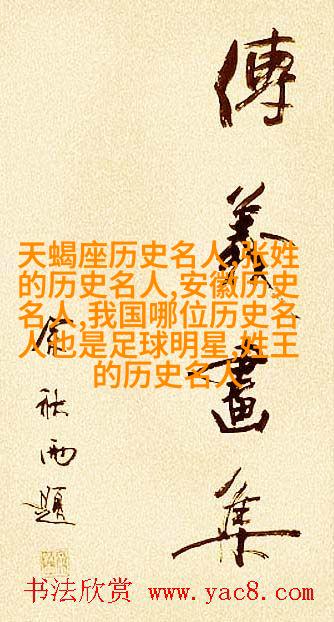 畫集
余秋雨題
天蝎座历史名人,张姓
的历史名人,安徽历史
名人,我国哪位历史名
人也是足球明星,姓王
的历史名人
书法欣赏 www.yac8.com